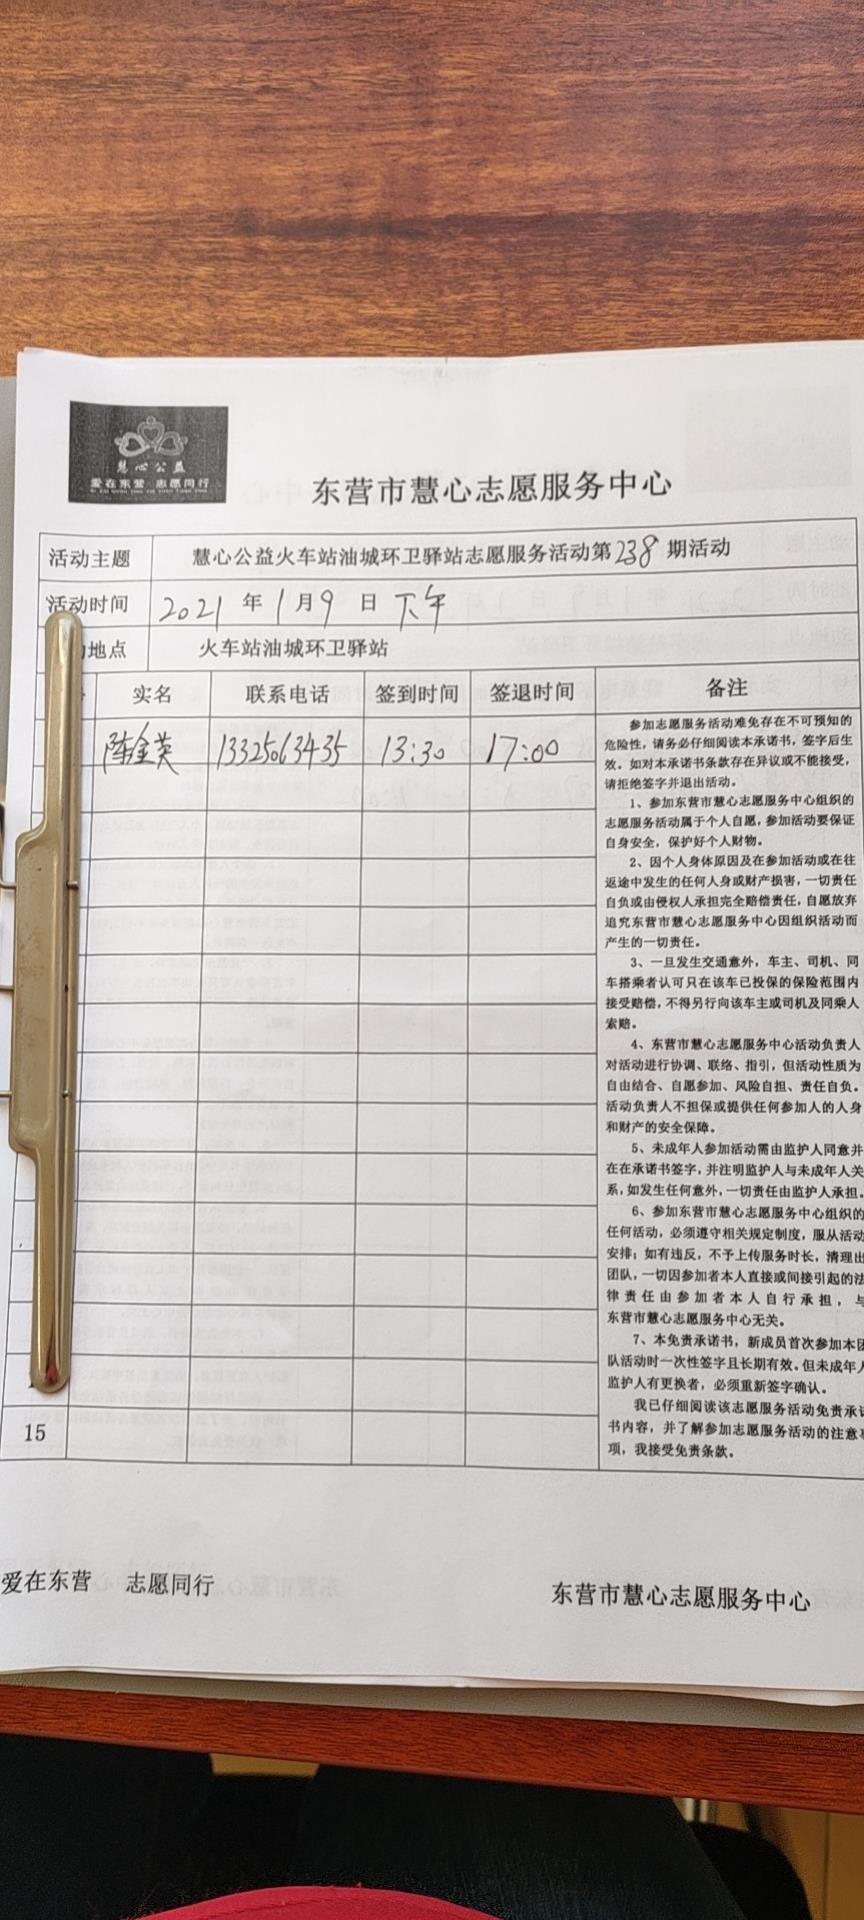 慧心公益
爱在东营 志愿同行
东营市慧心志愿服务中心
活动主题 慧心公益火车站油城环卫驿站志愿服务活动第238期活动
活动时间 2021年1月9日下午
地点 火车站油城环卫驿站
实名 联系电话 签到时间 签退时间 备注
陈金英 13325063435 13:30 17:00
参加志愿服务活动难免存在不可预知的
危险性，请务必仔细阅读本承诺书，签字后生
效。如对本承诺书条款存在异议或不能接受，
请拒绝签字并退出活动。
1、参加东营市慧心志愿服务中心组织的
志愿服务活动属于个人自愿，参加活动要保证
自身安全，保护好个人财物。
2、因个人身体原因及在参加活动或在往
返途中发生的任何人身或财产损害，一切责任
自负或由侵权人承担完全赔偿责任，自愿放弃
追究东营市慧心志愿服务中心因组织活动而
产生的一切责任。
3、一旦发生交通意外，车主、司机、同
车搭乘者认可只在该车已投保的保险范围内
接受赔偿，不得另行向该车主或司机及同乘人
索赔。
4、东营市慧心志愿服务中心活动负责人
对活动进行协调、联络、指引，但活动性质为
自由结合、自愿参加、风险自担、责任自负。
活动负责人不担保或提供任何参加人的人身
和财产的安全保障。
5、未成年人参加活动需由监护人同意并
在在承诺书签字，并注明监护人与未成年人关
系，如发生任何意外，一切责任由监护人承担。
6、参加东营市慧心志愿服务中心组织的
任何活动，必须遵守相关规定制度，服从活动
安排；如有违反，不予上传服务时长，清理出
团队，一切因参加者本人直接或间接引起的法
律责任由参加者本人自行承担，与
东营市慧心志愿服务中心无关。
7、本免责承诺书，新成员首次参加本团
队活动时一次性签字且长期有效。但未成年人
监护人有更换者，必须重新签字确认。
我已仔细阅读该志愿服务活动免责承诺
书内容，并了解参加志愿服务活动的注意事
项，我接受免责条款。
15
爱在东营 志愿同行
东营市慧心志愿服务中心